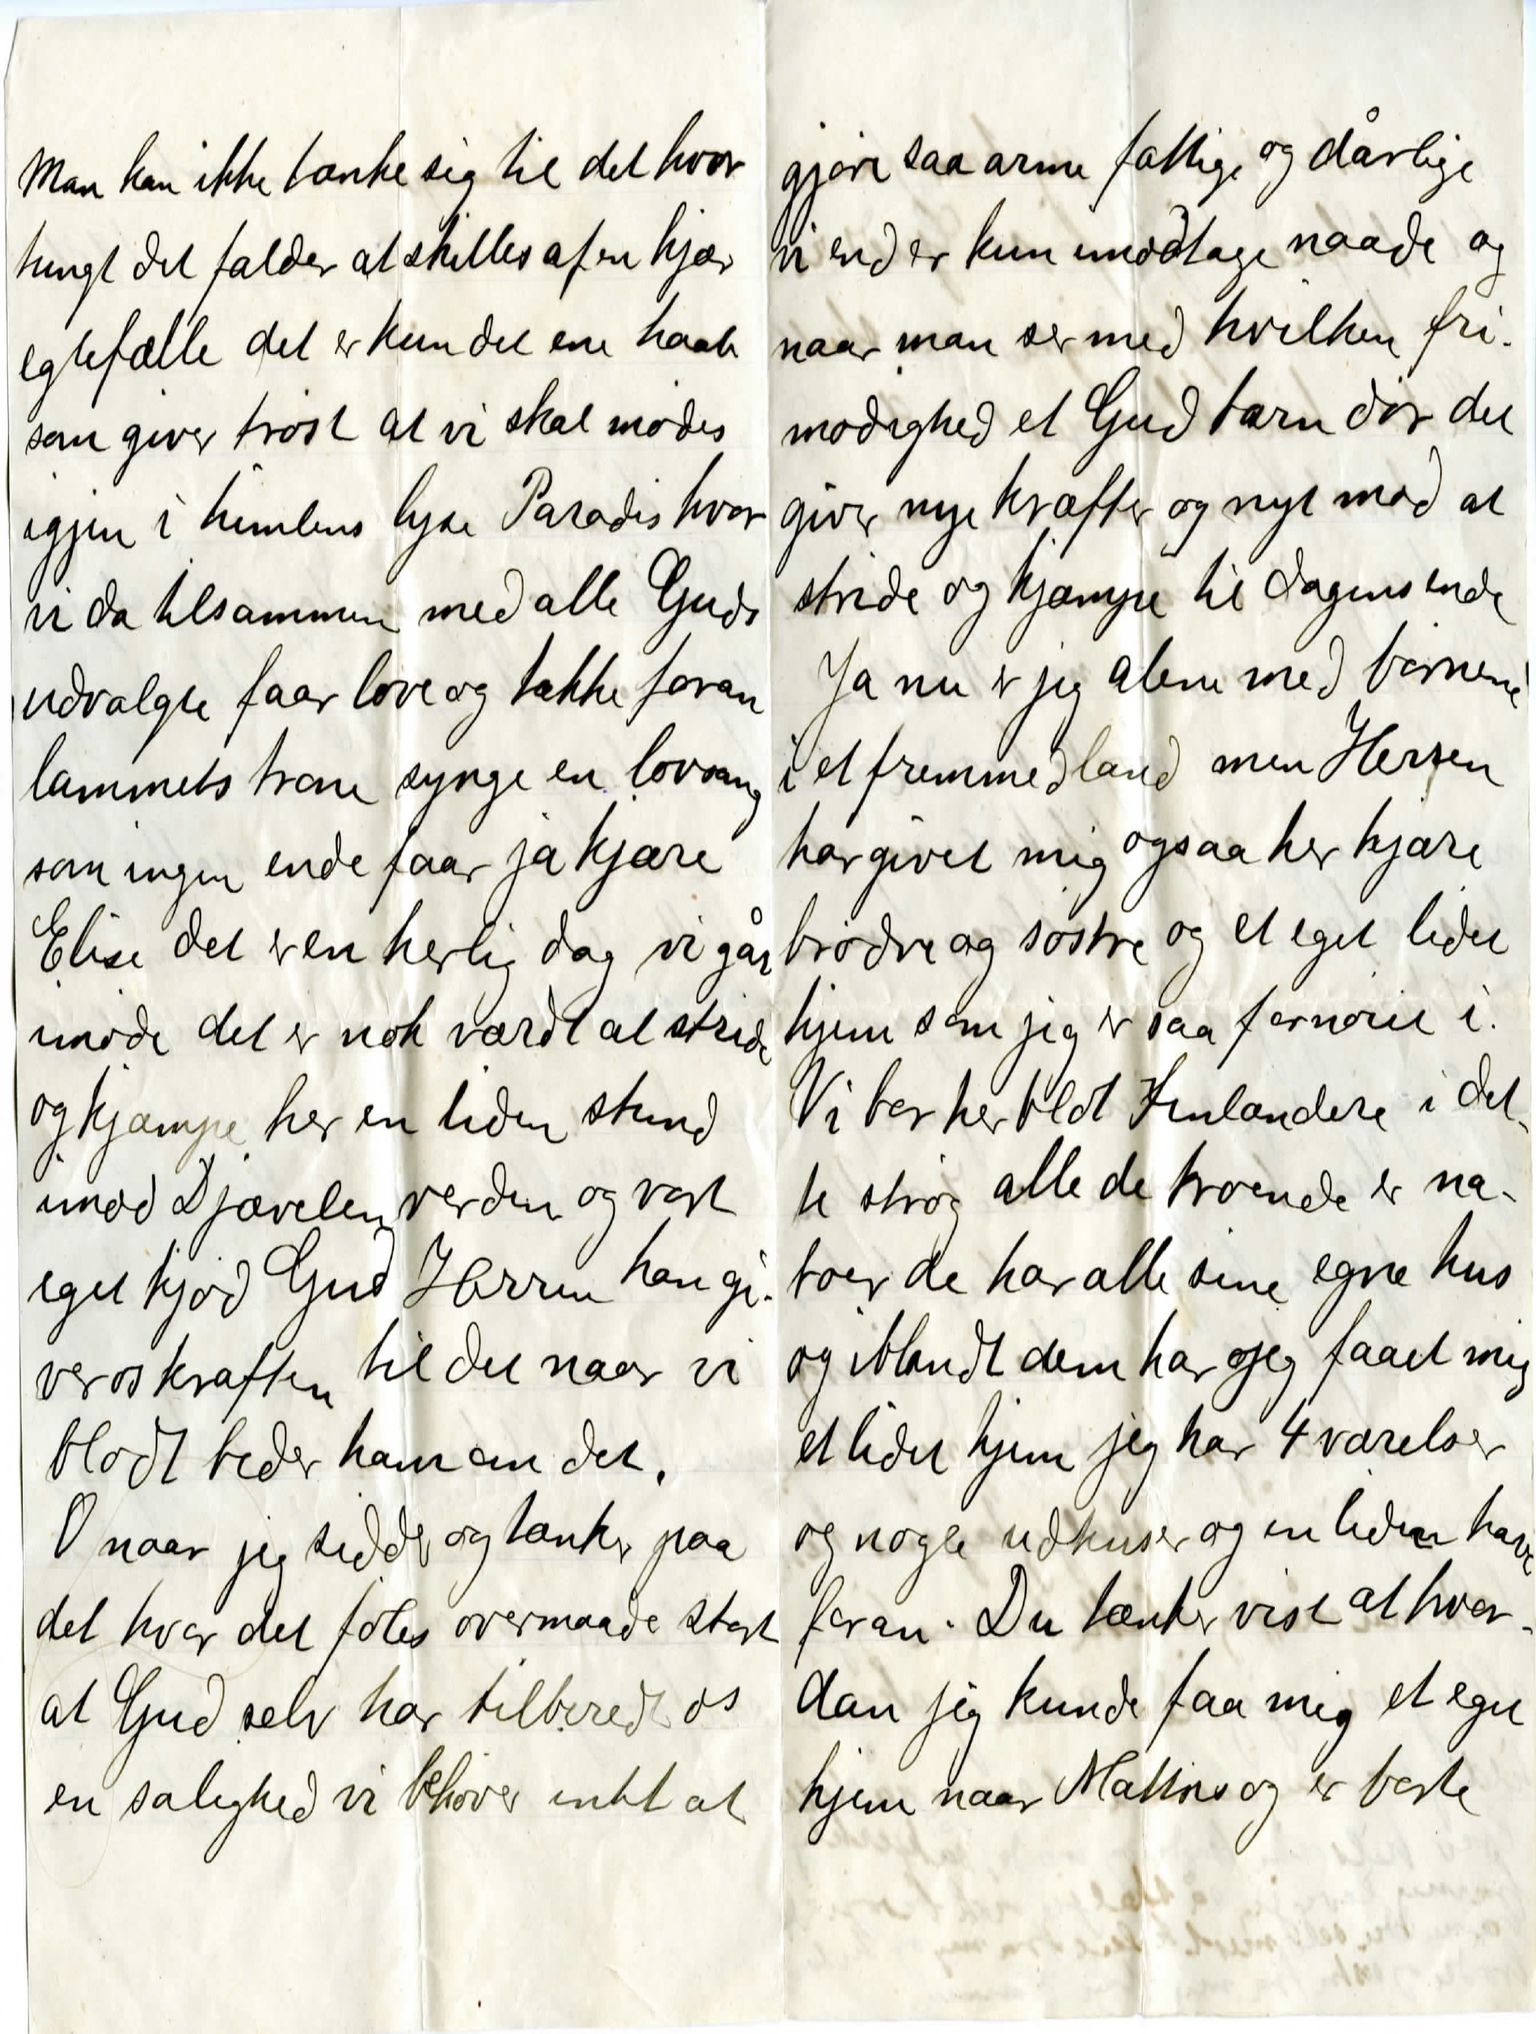 Man kan ikke tænke sig til det hvor
tungt det falder at skilles af en kjær
egtefælle det er kun det ene haab
som giver trøst at vi skal mødes
igjen i himlens lyse Paradis hvor
vi da tilsammen med alle Guds
udvalgte faar love og takke foran
lammets trone synge en lovsang
som ingen ende faar ja kjære
Elise det er en herlig dag vi går
imøde det er nok værdt at stride
og kjæmpe her en liden stund
imod Djævelen verden og vort
eget kjød Gud Herren han gi-
ver os kraften til det naar vi
blodt beder ham om det.
O naar jeg sidder og tænker paa
det hvor det føles overmaade stort
at Gud selv har tilberedt os
en salighed vi behøver intet at
gjøre saa arme fattige og dårlige
vi end er kun imodtage naade og
naar man ser med hvilken fri-
modighed et Guds barn dør det
giver nye kræfter og nyt mod at
stride og kjæmpe til dagens ende
Ja nu er jeg alene med børnene
i et fremmed land men Herren
har givet mig ogsaa her kjære
brødre og søstre og et eget lidet
hjem som jeg er saa fornøiet i.
Vi bor her bldt Finlændere i det-
te strøg alle de troende er na-
boer de har alle sine egne hus
og iblandt dem har jeg faaet mig
et lidet hjem jeg har 4 værelser
og nogle udhuser og en liden have
foran. Du tænker vist at hvor-
dan jeg kunde faa mig et eget
hjem naar Mattis og er borte